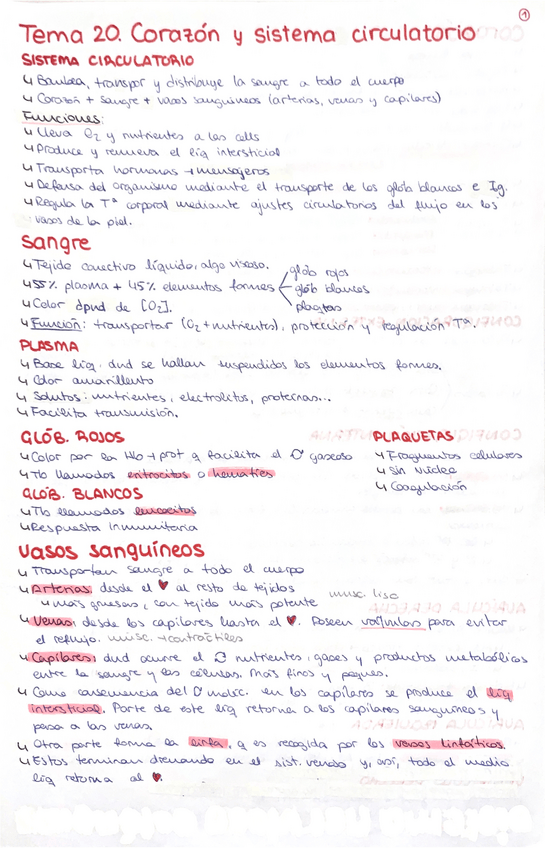 1
Tema 20. Corazón y sistema circulatorio
SISTEMA CIRCULATORIO
↳ Bombea, transpor y distribuye la sangre a todo el cuerpo
↳ Corazón + sangre + vasos sanguíneos (arterias, venas y capilares)
Funciones:
↳ Lleva O₂ y nutrientes a las cells
↳ Produce y renueva el líq intersticial
↳ Transporta hormonas + mensajeros
↳ Defensa del organismo mediante el transporte de los glób blancos e Ig.
↳ Regula la Tª corporal mediante ajustes circulatorios del flujo en los
vasos de la piel.
Sangre
↳ Tejido conectivo líquido, algo viscoso.
↳ 55% plasma + 45% elementos formes
glób rojos
glób blancos
plaqtas
↳ Color dpnd de [O₂].
↳ Función: transportar (O₂ + nutrientes), protección y regulación Tª.
PLASMA
↳ Base líq, dnd se hallan suspendidos los elementos formes.
↳ Color amarillento
↳ Solutos: nutrientes, electrolitos, proteínas...
↳ Facilita transmisión.
GLÓB. ROJOS
↳ Color por la Hb → prot q facilita el gaseoso
↳ Tb llamados eritrocitos o hematíes
PLAQUETAS
↳ Fragmentos celulares
↳ Sin núcleo
↳ Coagulación
GLÓB. BLANCOS
↳ Tb llamados leucocitos
↳ Respuesta inmunitaria
Vasos sanguíneos
↳ Transportan sangre a todo el cuerpo
↳ Arterias: desde el ♥ al resto de tejidos
↳ más gruesas, con tejido más potente
musc. liso
↳ Venas: desde los capilares hasta el ♥. Poseen válvulas para evitar
el reflujo. musc. → contráctiles
↳ Capilares: dnd ocurre el nutrientes, gases y productos metabólicos
entre la sangre y las células. Más finos y peques.
↳ Como consecuencia del molec. en los capilares se produce el líq
intersticial. Parte de este líq retorna a los capilares sanguíneos y
pasa a las venas.
↳ Otra parte forma la linfa, q es recogida por los vasos linfáticos.
↳ Estos terminan drenando en el sist. venoso y, así, todo el medio
líq retorna al ♥.